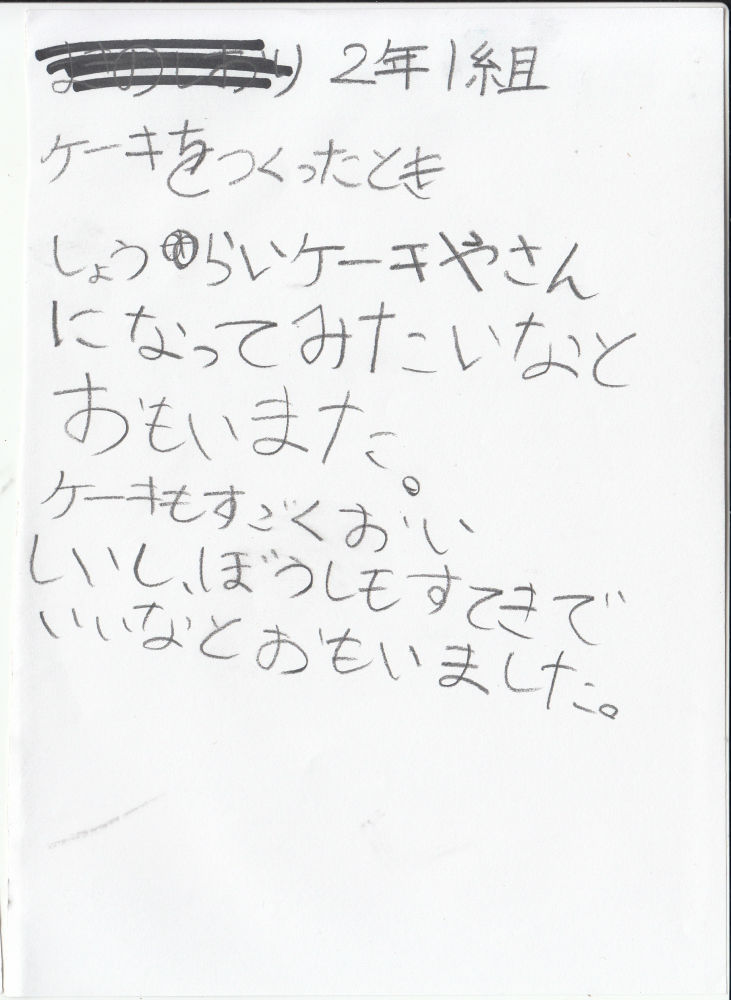 2年1組
ケーキをつくったとき
しょうらいケーキやさん
になってみたいなと
おもいまた。
ケーキもすごくおい
しいし、ぼうしもすてきで
いいなとおもいました。